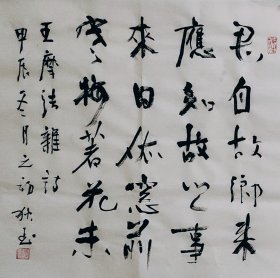 君自故鄉來
應知故人事
來日依窓前
寒梅著花未
王摩詰雜詩
甲辰冬月之初 秋玉